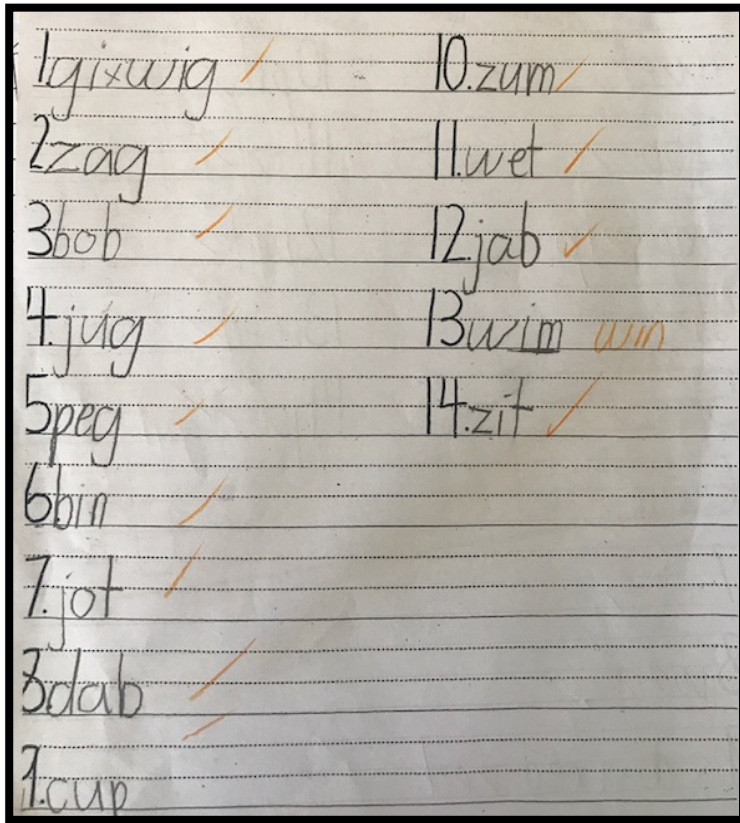 1gixwig
2zag
3bob
4.jug
5peg
6bin
7.jot
8dab
9.cup
10.zum
11.wet
12.jab
13wim win
14.zit